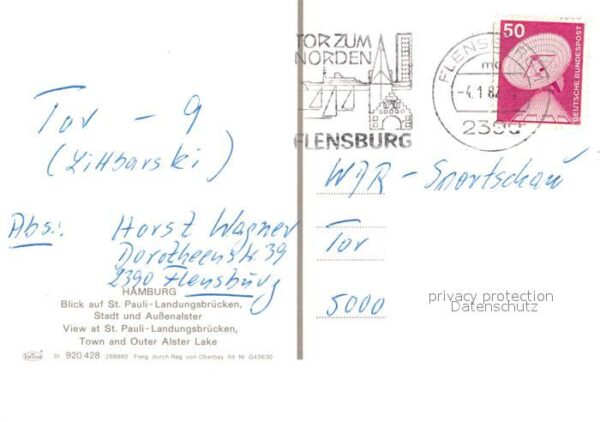 TOR ZUM
NORDEN
FLENSBURG
50
DEUTSCHE BUNDESPOST
Tor - 9
(Littbarski)
WDR - Sportschau
Tor
5000
Abs.: Horst Wagner
Dorotheenstr 39
2390 Flensburg
HAMBURG
Blick auf St. Pauli-Landungsbrücken,
Stadt und Außenalster
View at St. Pauli-Landungsbrücken,
Town and Outer Alster Lake
31 920.428 269880 Freig. durch Reg. von Oberbay. RS Nr G43630
privacy protection
Datenschutz